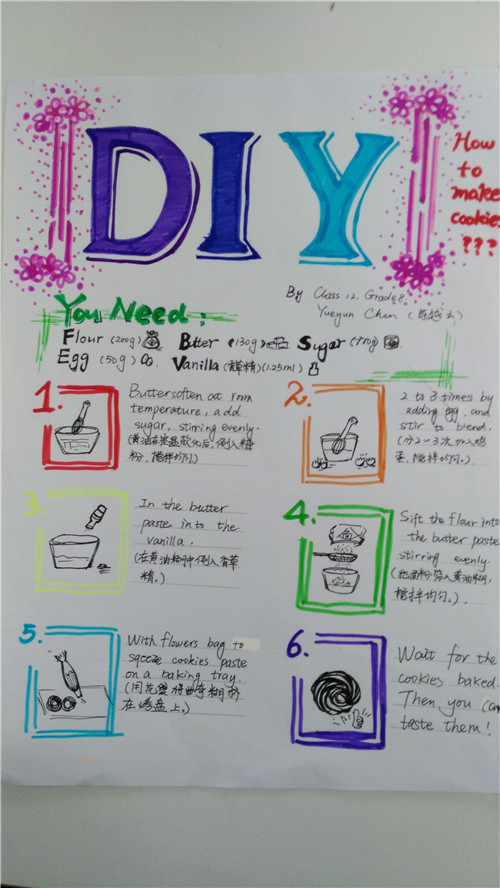 DIY
How
to
make
cookies
???
By Class 12. Grade 8.
Yueyun Chen
You Need:
Flour (200g) Butter (130g) Sugar
Egg (50g) Vanilla (精) (1.25ml)
1.
Butter soften at rnm
temperature, add
sugar, stirring evenly.
(黄油在室温软化后,倒入糖
粉,搅拌均匀.)
2.
2 to 3 times by
adding egg, and
stir to blend.
(分2~3次加入鸡
蛋,搅拌均匀.)
3.
In the butter
paste in to the
vanilla.
(在黄油糊中倒入香草
精.)
4.
Sift the flour into
the butter paste
stirring evenly.
(把面粉筛入黄油糊,
搅拌均匀.)
5.
With flowers bag to
sqeeze cookies paste
on a baking tray.
(用花袋将曲奇糊挤
在烤盘上.)
6.
Wait for the
cookies baked.
Then you can
taste them!